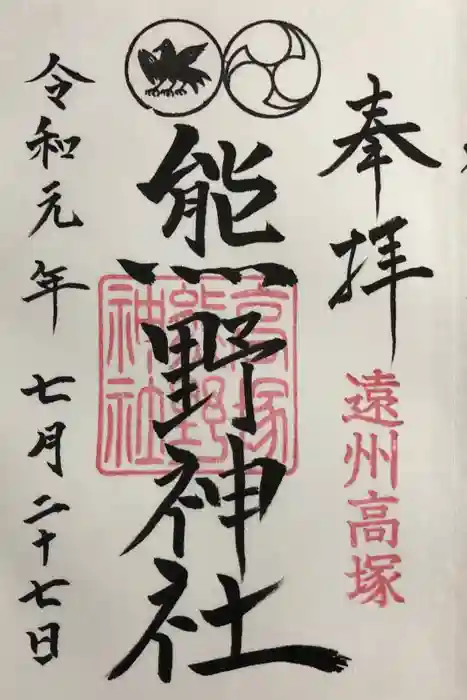 奉拝
遠州高塚
熊野神社
高塚
熊野
神社
令和元年七月二十七日